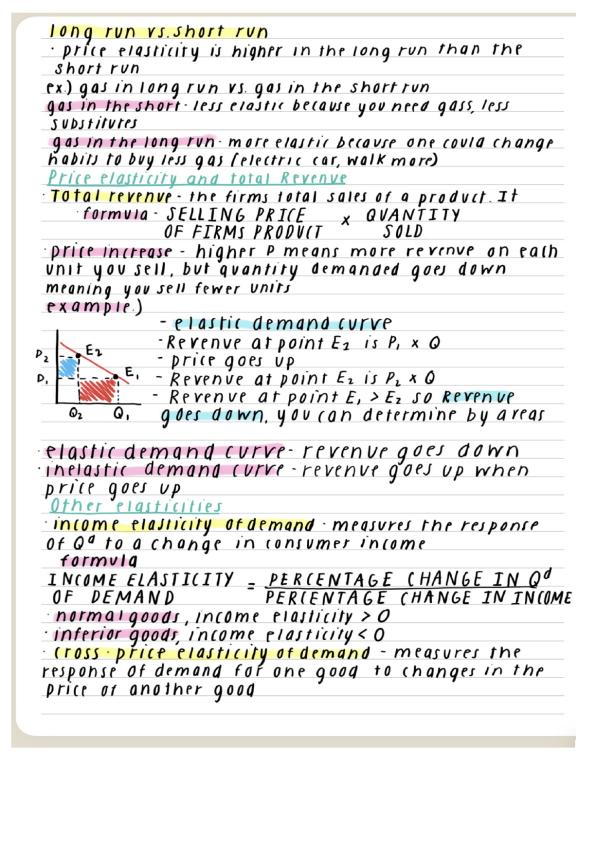 long run vs. short run
· price elasticity is higher in the long run than the
short run
ex.) gas in long run vs. gas in the short run
gas in the short - less elastic because you need gass, less
substitutes
gas in the long run - more elastic because one could change
habits to buy less gas (electric car, walk more)
Price elasticity and total Revenue
· Total revenue - the firms total sales of a product. It
· formula - SELLING PRICE x QUANTITY
OF FIRMS PRODUCT SOLD
· price increase - higher P means more revenue on each
unit you sell, but quantity demanded goes down
meaning you sell fewer units
example.)
- elastic demand curve
- Revenue at point E2 is P1 x Q
- price goes up
- Revenue at point E2 is P2 x Q
- Revenue at point E1 > E2 so Revenue
goes down, you can determine by areas
P2 E2
P1 E1
Q2 Q1
· elastic demand curve - revenue goes down
· inelastic demand curve - revenue goes up when
price goes up
Other elasticities
· income elasticity of demand - measures the response
of Qd to a change in consumer income
formula
INCOME ELASTICITY = PERCENTAGE CHANGE IN Qd
OF DEMAND PERCENTAGE CHANGE IN INCOME
· normal goods, income elasticity > 0
· inferior goods, income elasticity < 0
· cross-price elasticity of demand - measures the
response of demand for one good to changes in the
price of another good